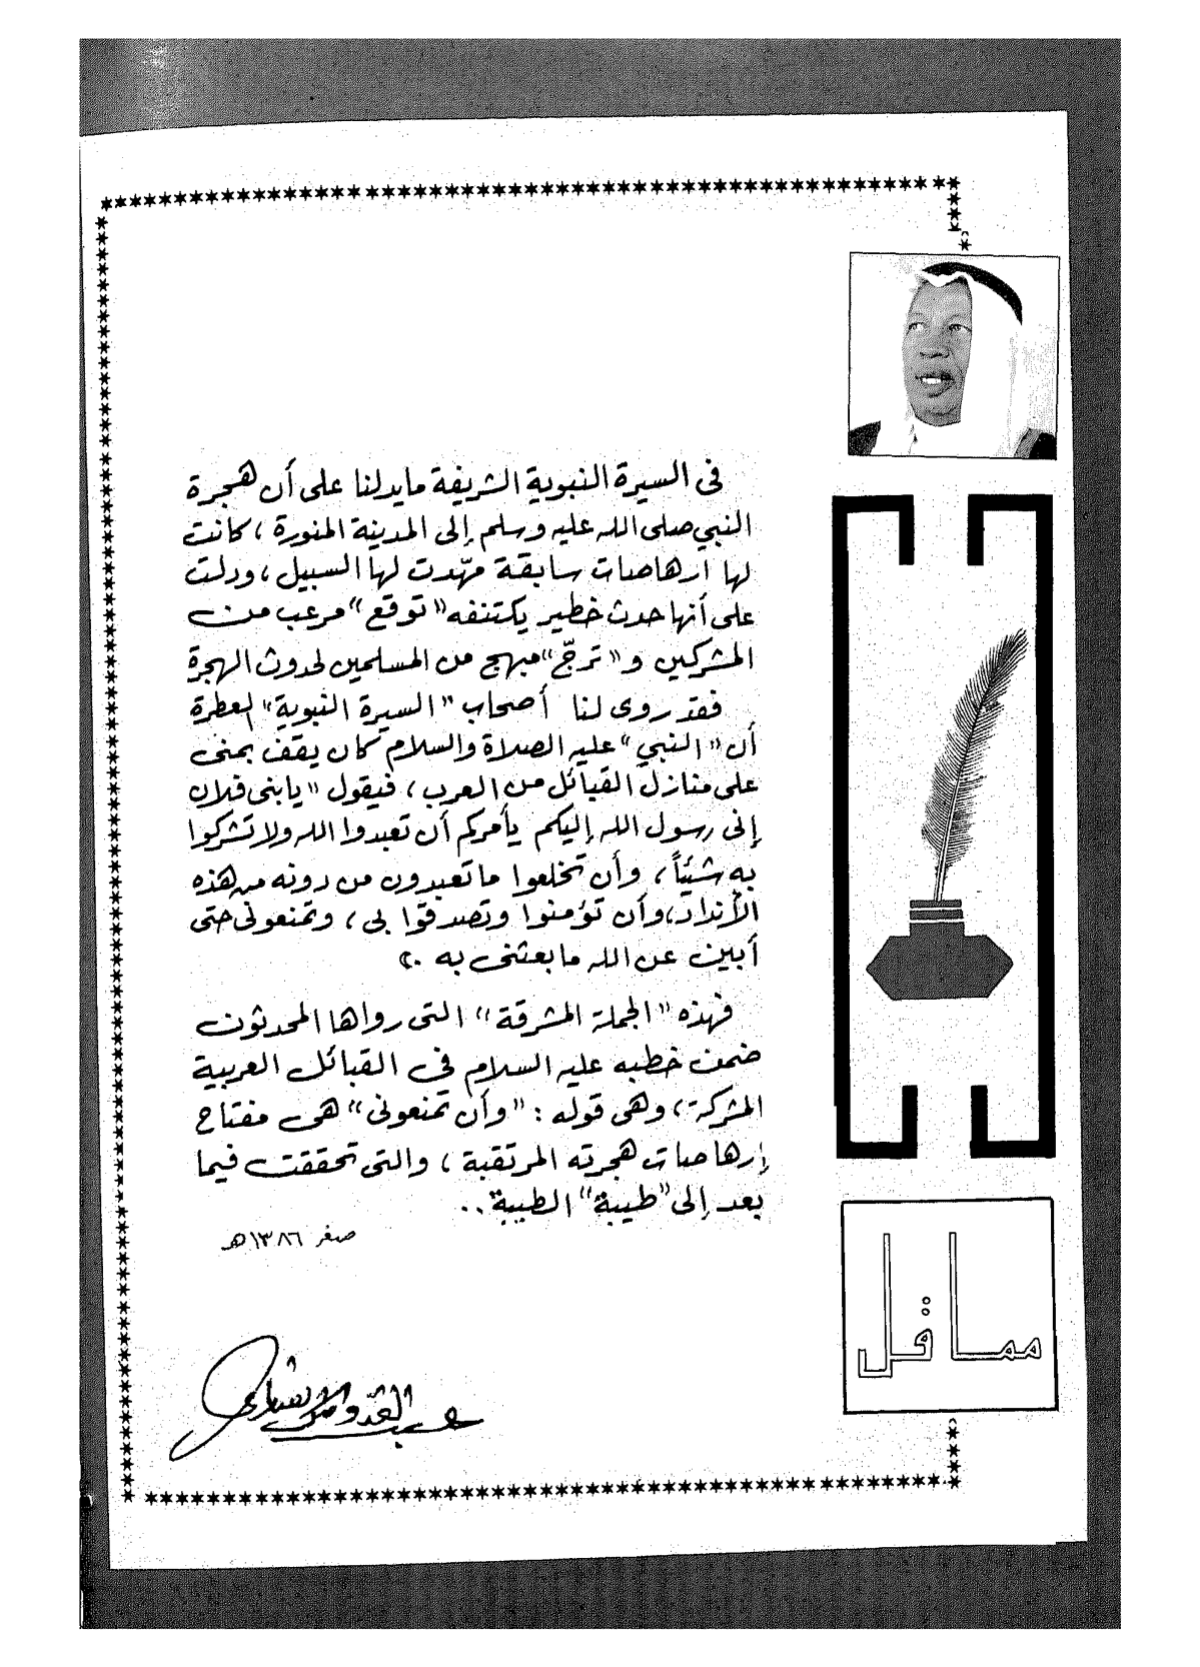 فى السيرة النبوية الشريفة مايدلنا على أن هجرة
النبي صلى الله عليه وسلم إلى المدينة المنورة ، كانت
لها ارهاصات سابقة مهّدت لها السبيل ، ودلت
على أنها حدث خطير يكتنفه "توقع" مرعب من
المشركين و "ترجّ" مبهج من المسلمين لحدوث الهجرة
فقد روى لنا أصحاب "السيرة النبوية" العطرة
أن "النبي" عليه الصلاة والسلام كان يقف بمنى
على منازل القبائل من العرب ، فيقول "يا بنى فلان
إنى رسول الله إليكم يأمركم أن تعبدوا الله ولا تشركوا
به شيئاً ، وأن تخلعوا ما تعبدون من دونه من هذه
الأنداد ، وأن تؤمنوا وتصدقوا بى ، وتمنعونى حتى
أبين عن الله ما بعثنى به .
فهذه "الجملة المشرقة" التى رواها المحدثون
ضمن خطبه عليه السلام فى القبائل العربية
المشركة ، وهى قوله : "وأن تمنعونى" هى مفتاح
إرهاصات هجرته المرتقبة ، والتى تحققت فيما
بعد إلى "طيبة" الطيبة ..
صفر ١٣٨٦هـ
عبد القدوس الانصارى
مما قل